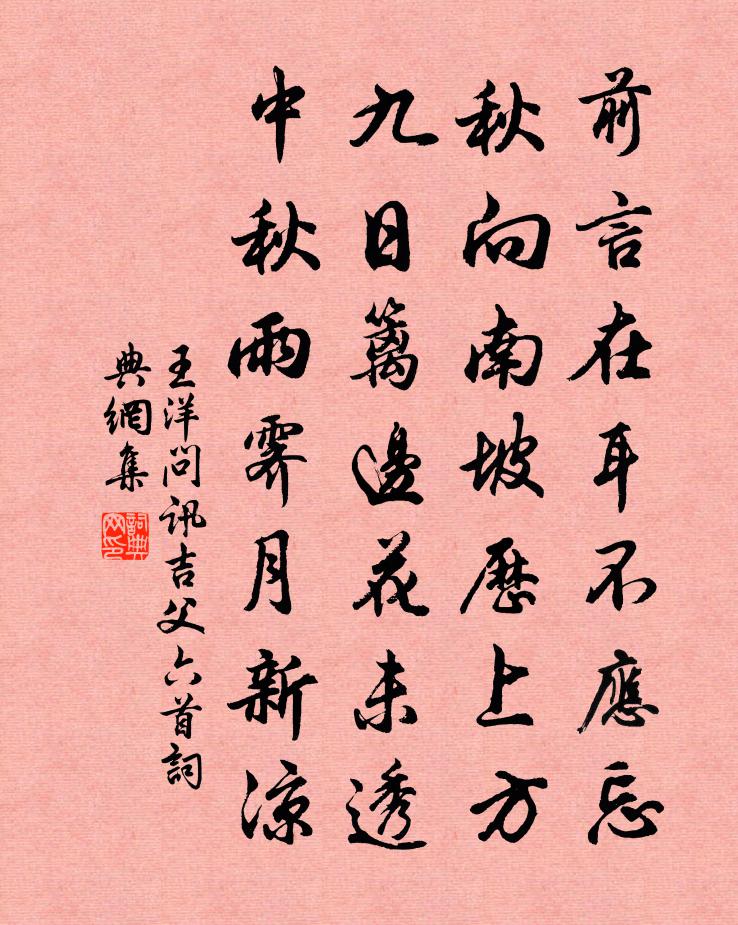 前言在耳不應忘
秋向南坡歷上方
九日籬邊花未透
中秋雨霽月新涼
王洋問訊吉父六首詞
典網集
詞典
网印